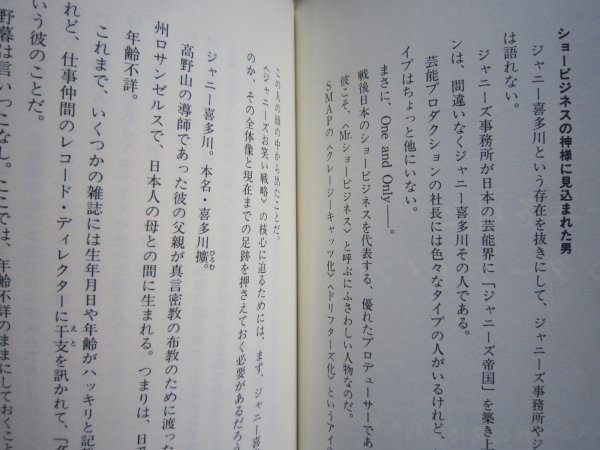 ショービジネスの神様に見込まれた男
ジャニー喜多川という存在を抜きにして、ジャニーズ事務所やジ
は語れない。
ジャニーズ事務所が日本の芸能界に「ジャニーズ帝国」を築き上
んは、間違いなくジャニー喜多川その人である。
芸能プロダクションの社長には色々なタイプの人がいるけれど、
イプはちょっと他にいない。
まさに、One and Only――。
戦後日本のショービジネスを代表する、優れたプロデューサーであ
彼こそ、〈Mr.ショービジネス〉と呼ぶにふさわしい人物なのだ。
SMAPの〈クレージーキャッツ化〉〈ドリフターズ化〉というアイ
この人の頭の中から出たことだ。
〈ジャニーズお笑い戦略〉の核心に迫るためには、まず、ジャニー喜
のか、その全体像と現在までの足跡を押さえておく必要があるだろう
ジャニー喜多川。本名・喜多川擴。
ひろむ
高野山の導師であった彼の父親が真言密教の布教のために渡った
州ロサンゼルスで、日本人の母との間に生まれる。つまりは、日
年齢不詳。
これまで、いくつかの雑誌には生年月日や年齢がハッキリと記
れど、仕事仲間のレコード・ディレクターに干支を訊かれて、「
えと
いう彼のことだ。
野暮は言いっこなし。ここでは、年齢不詳のままにしておくこと